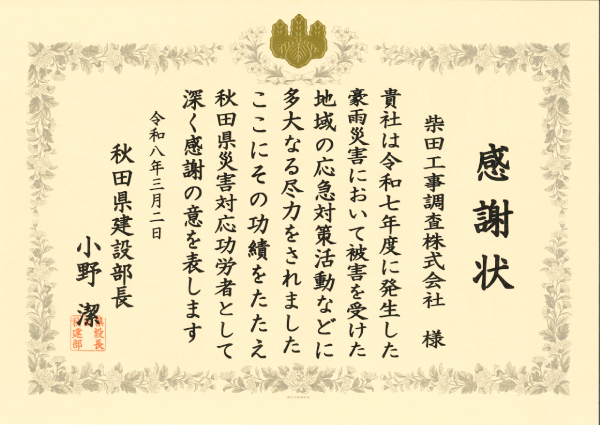 感謝状
柴田工事調査株式会社 様
貴社は令和七年度に発生した
豪雨災害において被害を受けた
地域の応急対策活動などに
多大なる尽力をされました
ここにその功績をたたえ
秋田県災害対応功労者として
深く感謝の意を表します
令和八年三月二日
秋田県建設部長
小野 潔